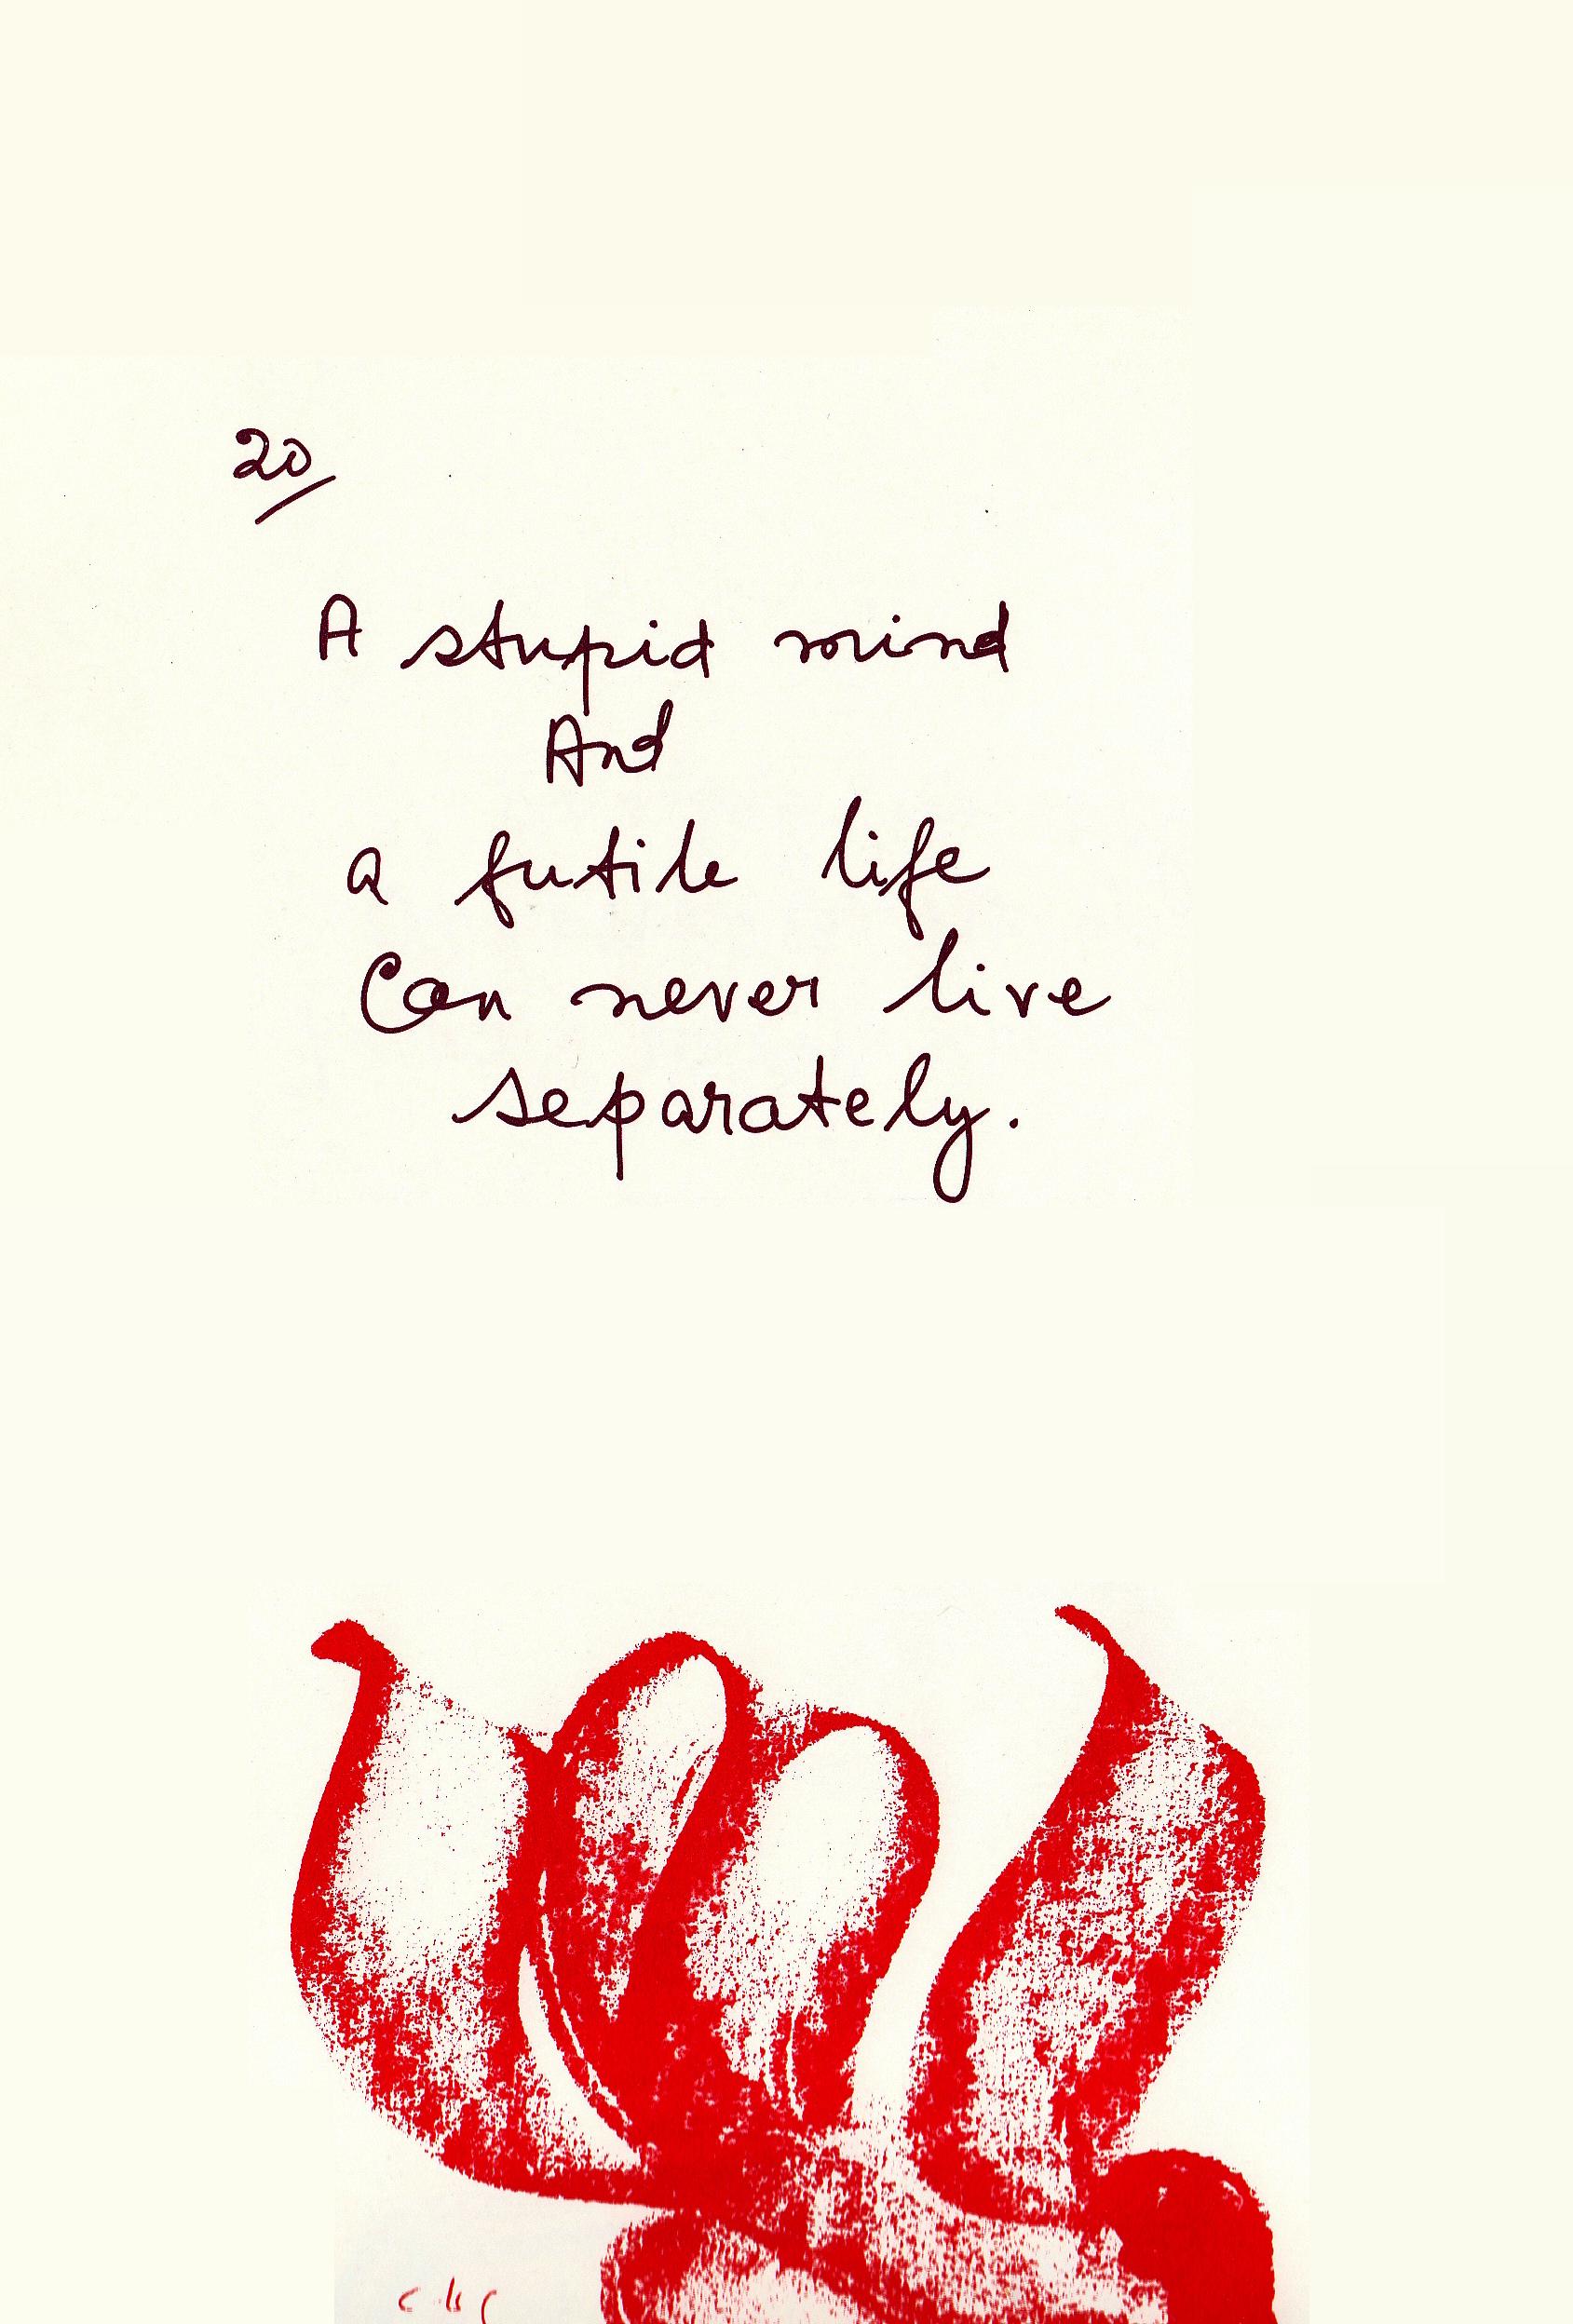 20
A stupid mind
And
a futile life
Can never live
separately.